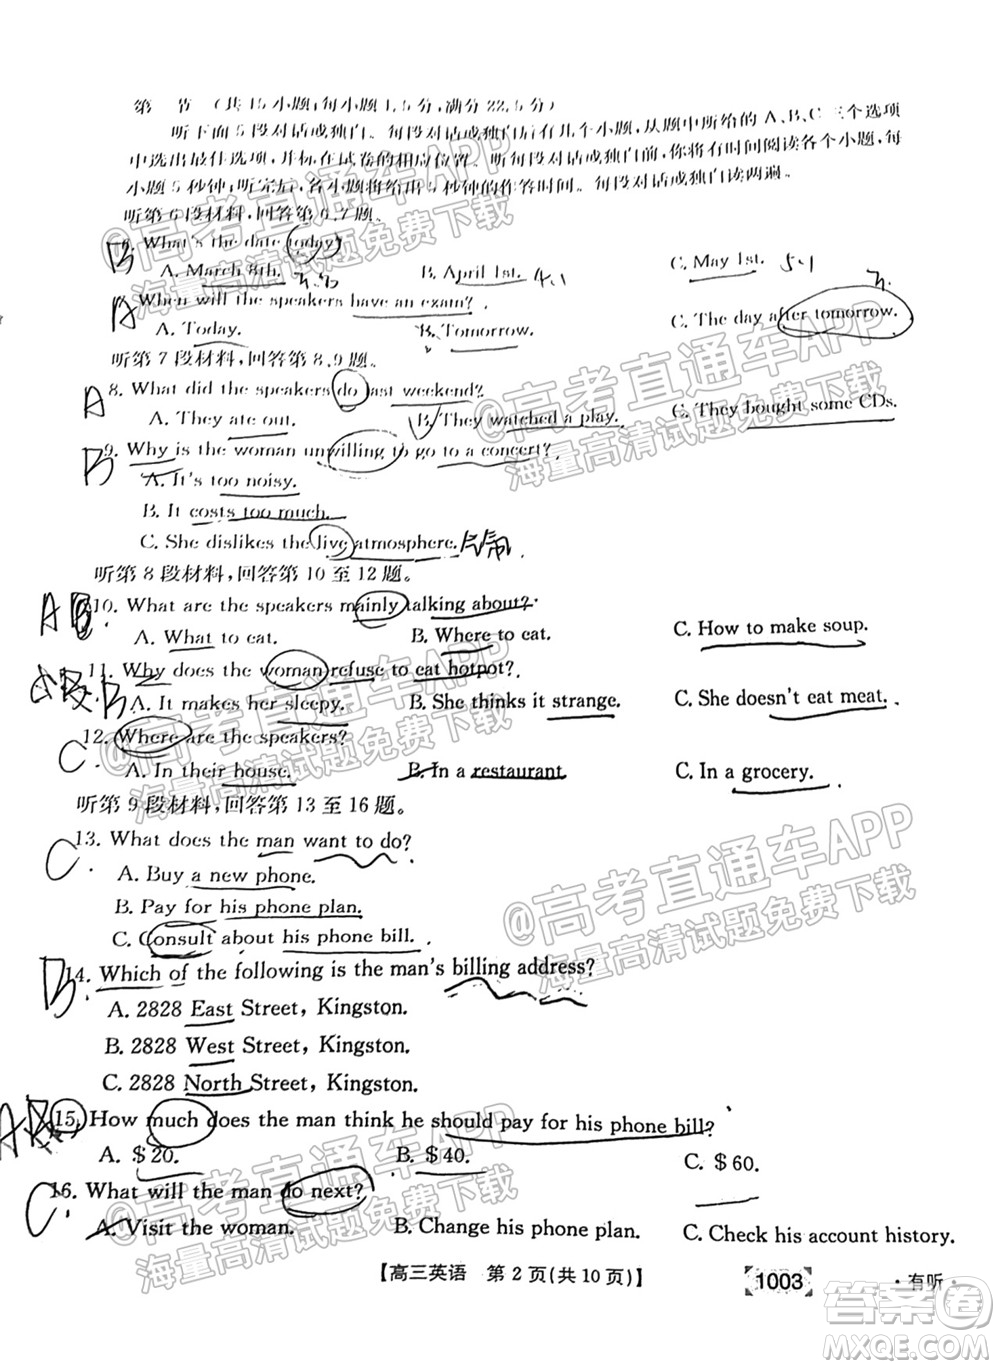 第 节 (共 15 小题;每小题 1.5 分,满分 22.5 分)
听下面 5 段对话或独白。每段对话或独白后有几个小题,从题中所给的 A、B、C 三个选项
中选出最佳选项,并标在试卷的相应位置。听每段对话或独白前,你将有时间阅读各个小题,每
小题 5 秒钟;听完后,各小题将给出 5 秒钟的作答时间。每段对话或独白读两遍。
听第 6 段材料,回答第 6、7 题。
B 6. What's the date today?
A. March 8th. B. April 1st. 4.1 C. May 1st. 5.1
A When will the speakers have an exam?
A. Today. B. Tomorrow. C. The day after tomorrow.
听第 7 段材料,回答第 8、9 题。
A 8. What did the speakers do last weekend?
A. They ate out. B. They watched a play. C. They bought some CDs.
B 9. Why is the woman unwilling to go to a concert?
A. It's too noisy.
B. It costs too much.
C. She dislikes the live atmosphere. 气氛
听第 8 段材料,回答第 10 至 12 题。
A B 10. What are the speakers mainly talking about?
A. What to eat. B. Where to eat. C. How to make soup.
B 11. Why does the woman refuse to eat hotpot?
A. It makes her sleepy. B. She thinks it strange. C. She doesn't eat meat.
C 12. Where are the speakers?
A. In their house. B. In a restaurant. C. In a grocery.
听第 9 段材料,回答第 13 至 16 题。
C 13. What does the man want to do?
A. Buy a new phone.
B. Pay for his phone plan.
C. Consult about his phone bill.
B 14. Which of the following is the man's billing address?
A. 2828 East Street, Kingston.
B. 2828 West Street, Kingston.
C. 2828 North Street, Kingston.
A 15. How much does the man think he should pay for his phone bill?
A. $20. B. $40. C. $60.
C 16. What will the man do next?
A. Visit the woman. B. Change his phone plan. C. Check his account history.
【高三英语 第 2 页(共 10 页)】 1003 ·有听·
@高考直通车APP
海量高清试题免费下载
@高考直通车APP
海量高清试题免费下载
@高考直通车APP
海量高清试题免费下载
@高考直通车APP
海量高清试题免费下载
@高考直通车APP
海量高清试题免费下载
答案圈
MXQE.COM